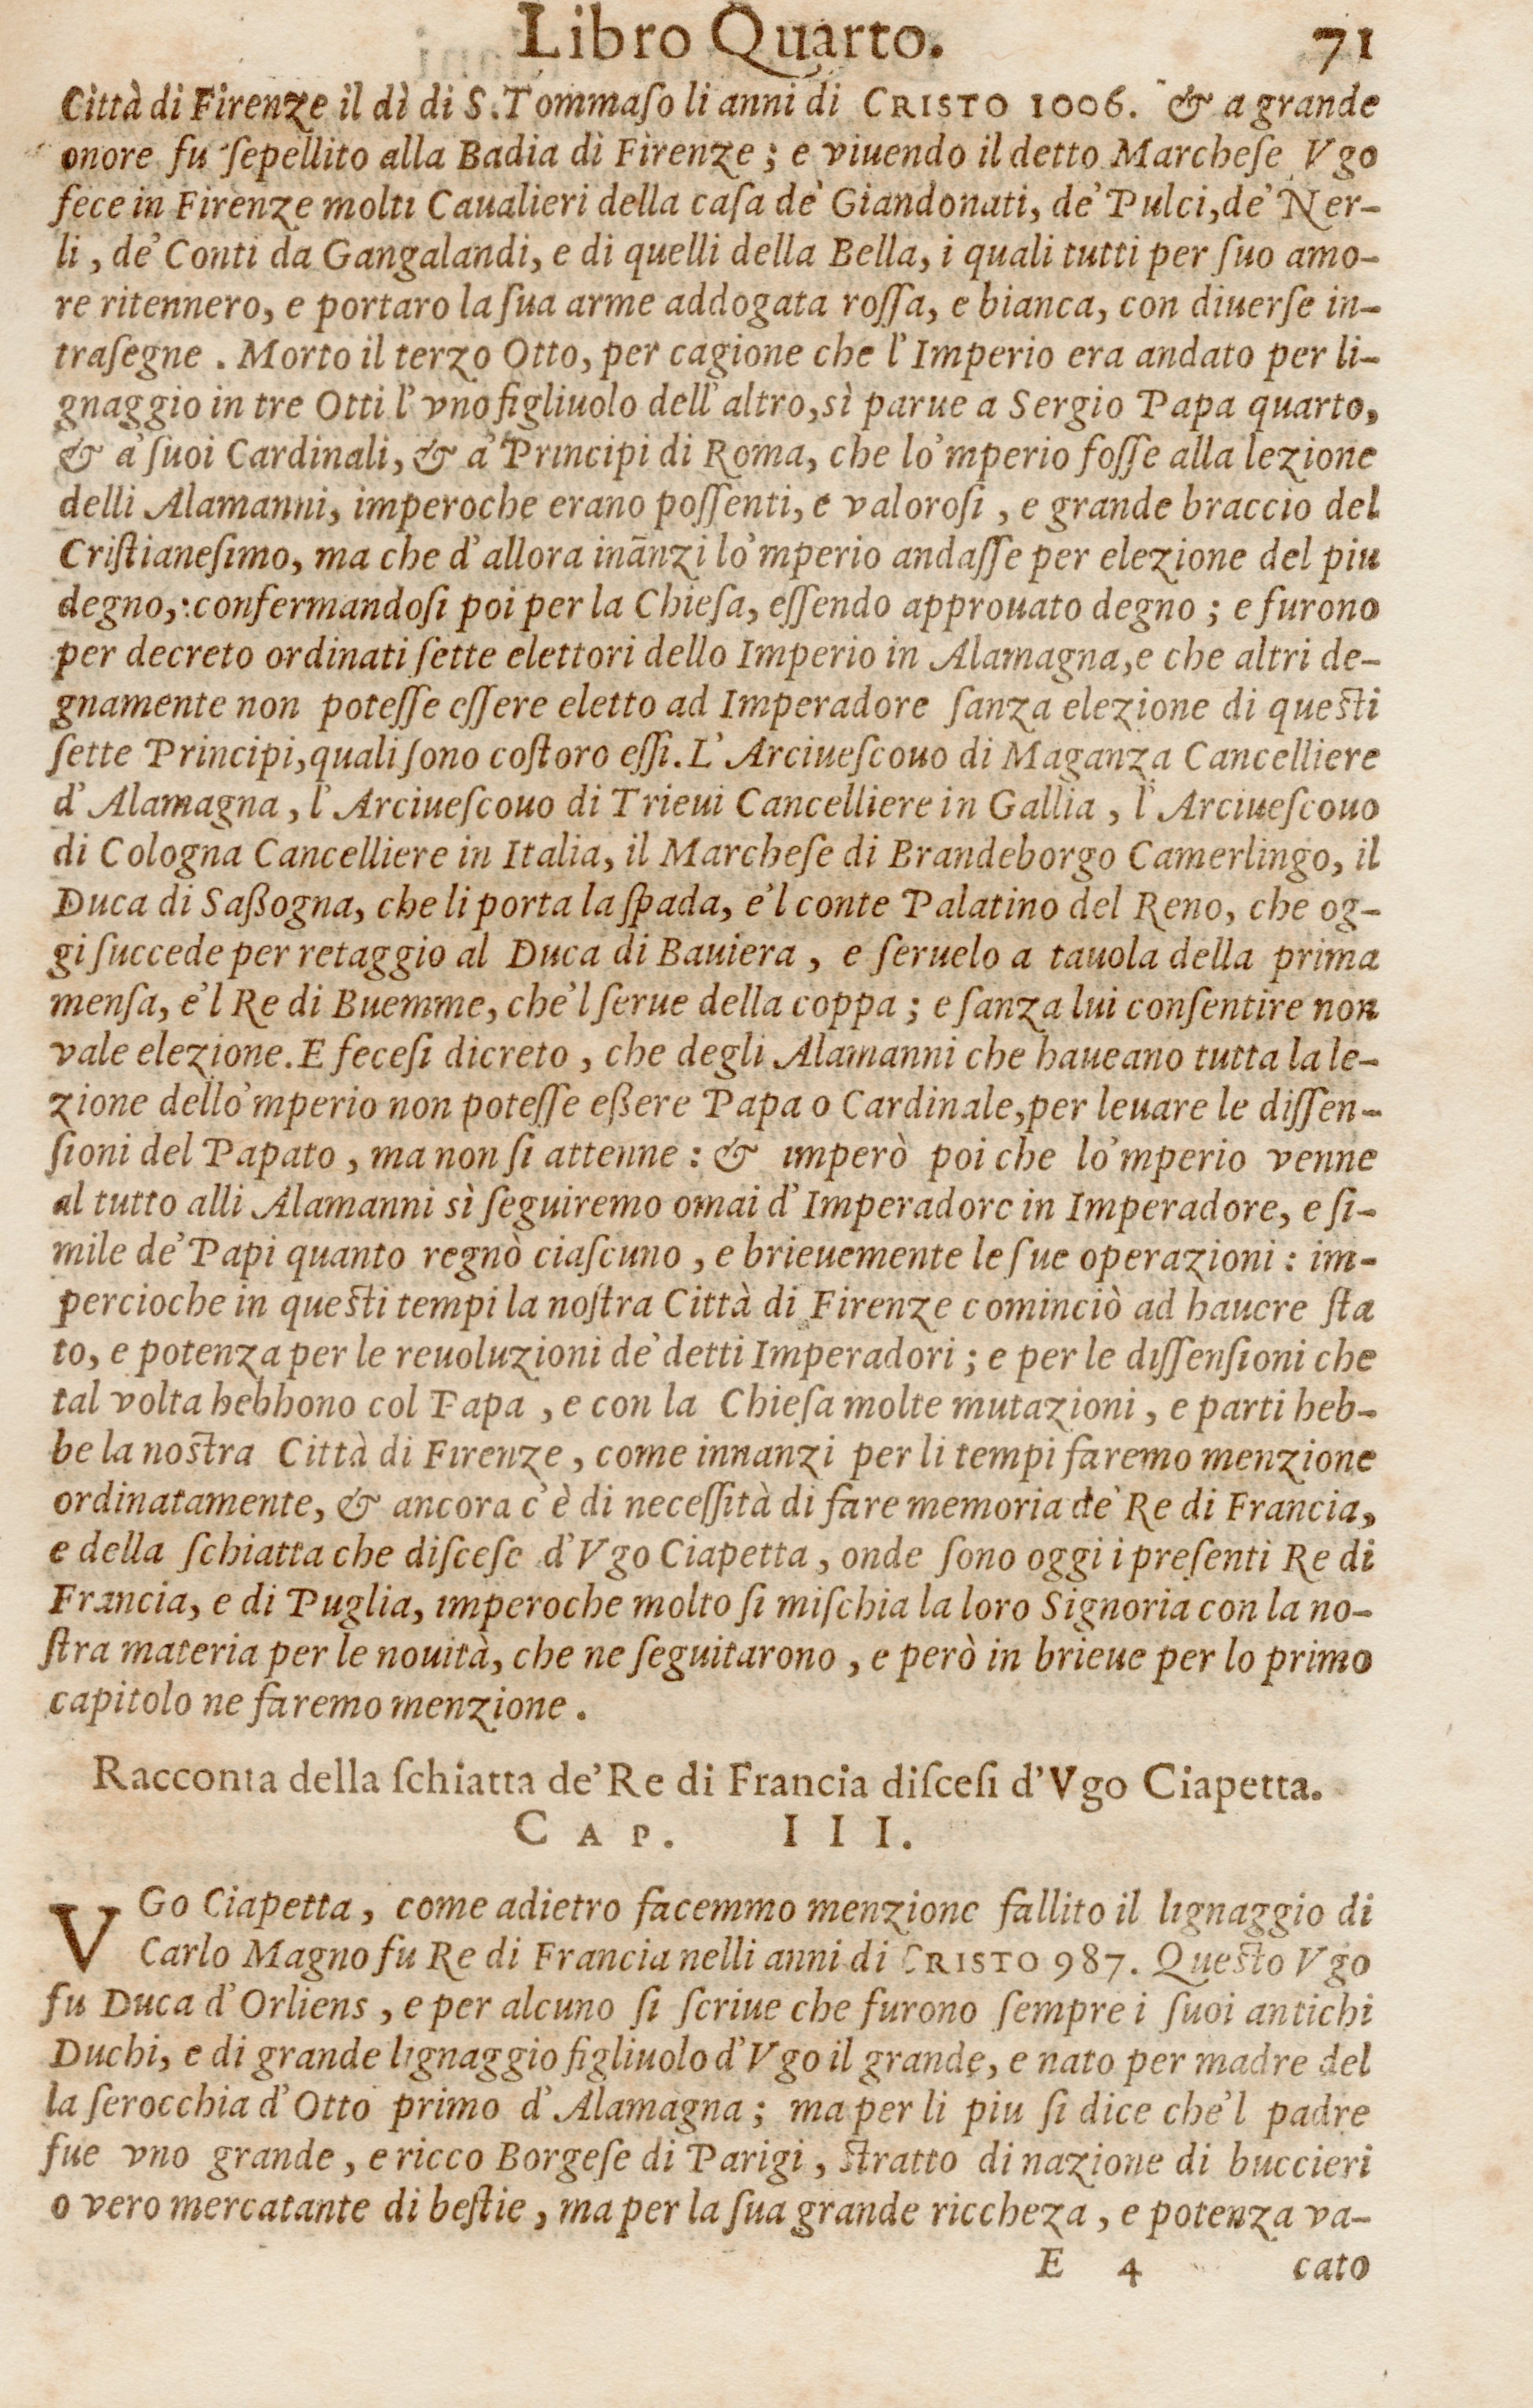 Libro Quarto. 71
Città di Firenze il dì di S. Tommaſo li anni di CRISTO 1006. & a grande
onore fu ſepellito alla Badia dì Fìrenze; e viuendo il detto Marcheſe Vgo
fece in Firenze molti Caualieri della caſa de' Giandonati, de' Pulci, de' Ner-
li, de' Conti da Gangalandi, e di quelli della Bella, i quali tutti per ſuo amo-
re ritennero, e portaro la ſua arme addogata roſſa, e bianca, con diuerſe in-
traſegne. Morto il terzo Otto, per cagione che l'Imperio era andato per li-
gnaggio in tre Otti l'vno figliuolo dell'altro, sì parue a Sergio Papa quarto,
& a' ſuoi Cardinali, & a' Principi di Roma, che lo'mperio foſſe alla lezione
delli Alamanni, imperoche erano poſſenti, e valoroſi, e grande braccio del
Criſtianeſimo, ma che d'allora inãnzi lo'mperio andaſſe per elezione del piu
degno, confermandoſi poi per la Chieſa, eſſendo approuato degno; e furono
per decreto ordinati ſette elettori dello Imperio in Alamagna, e che altri de-
gnamente non poteſſe eſſere eletto ad Imperadore ſanza elezione di queſti
ſette Principi, quali ſono coſtoro eſſi. L'Arciueſcouo di Maganza Cancelliere
d'Alamagna, l'Arciueſcouo di Trieui Cancelliere in Gallia, l'Arciueſcouo
di Cologna Cancelliere in Italia, il Marcheſe di Brandeborgo Camerlingo, il
Duca di Saßogna, che li porta la ſpada, e'l conte Palatino del Reno, che og-
gi ſuccede per retaggio al Duca di Bauiera, e ſeruelo a tauola della prima
menſa, e'l Re di Buemme, che'l ſerue della coppa; e ſanza lui conſentire non
vale elezione. E feceſi dicreto, che degli Alamanni che haueano tutta la le-
zione dello'mperio non poteſſe eßere Papa o Cardinale, per leuare le diſſen-
ſioni del Papato, ma non ſi attenne: & imperò poi che lo'mperio venne
al tutto alli Alamanni sì ſeguiremo omai d'Imperadore in Imperadore, e ſi-
mile de' Papi quanto regnò ciaſcuno, e brieuemente le ſue operazioni: im-
percioche in queſti tempi la noſtra Città di Firenze cominciò ad hauere ſta
to, e potenza per le reuoluzioni de' detti Imperadori; e per le diſſenſioni che
tal volta hebbono col Papa, e con la Chieſa molte mutazioni, e parti heb-
be la noſtra Città di Firenze, come innanzi per li tempi faremo menzione
ordinatamente, & ancora c'è di neceſſità di fare memoria de' Re di Francia,
e della ſchiatta che diſceſe d'Vgo Ciapetta, onde ſono oggi i preſenti Re di
Francia, e di Puglia, imperoche molto ſi miſchia la loro Signoria con la no-
ſtra materia per le nouità, che ne ſeguitarono, e però in brieue per lo primo
capitolo ne faremo menzione.
Racconta della ſchiatta de' Re di Francia diſceſi d'Vgo Ciapetta.
CAP. III.
VGo Ciapetta, come adietro facemmo menzione fallito il lignaggio di
Carlo Magno fu Re di Francia nelli anni di CRISTO 987. Queſto Vgo
fu Duca d'Orliens, e per alcuno ſi ſcriue che furono ſempre i ſuoi antichi
Duchi, e di grande lignaggio figliuolo d'Vgo il grande, e nato per madre del
la ſerocchia d'Otto primo d'Alamagna; ma per li piu ſi dice che'l padre
fue vno grande, e ricco Borgeſe di Parigi, ſtratto di nazione di buccieri
o vero mercatante di beſtie, ma per la ſua grande riccheza, e potenza va-
E 4 cato